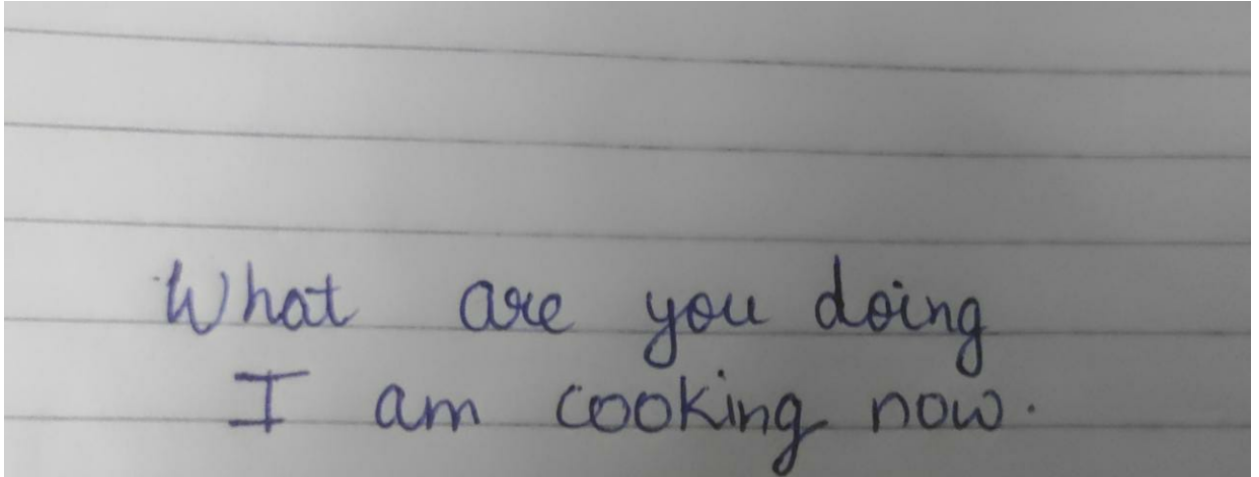 What are you doing
I am cooking now.